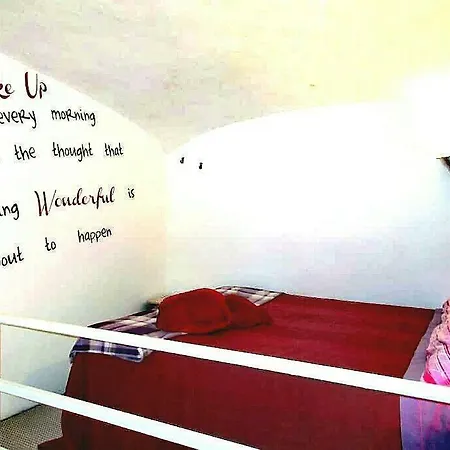 ke Up
every morning
the thought that
ng Wonderful is
out to happen